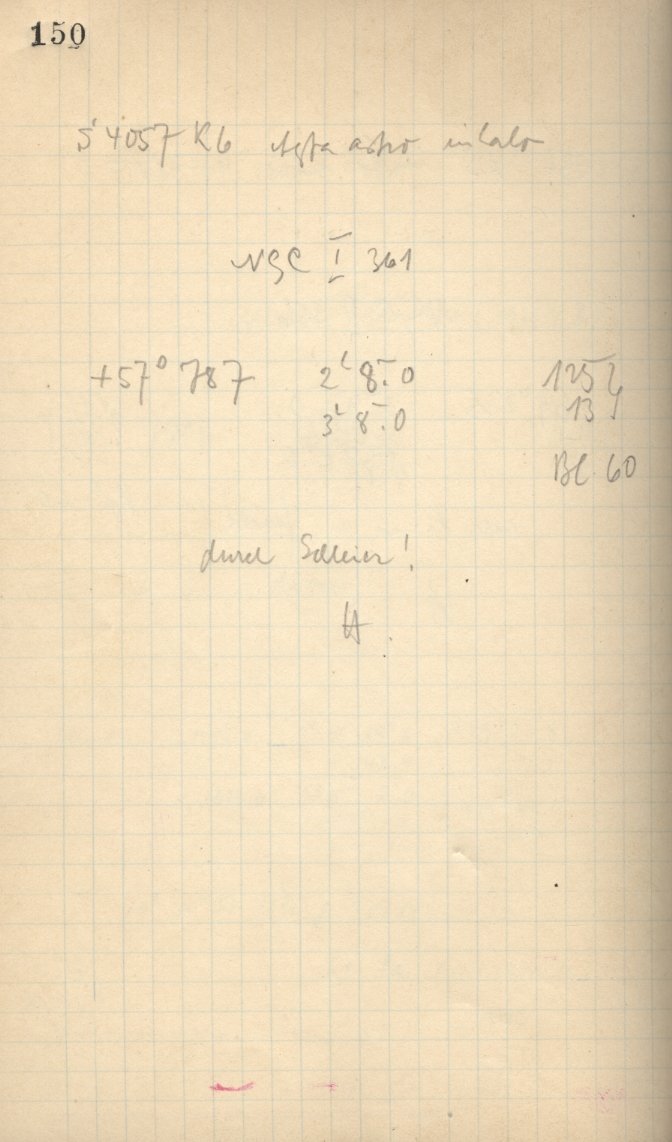 150
S 4057 R6 Agfa astro
NGC I 361
+57° 787 2ᶦ 8.0
3ᶦ 8.0
Bl 60
durch Schleier!